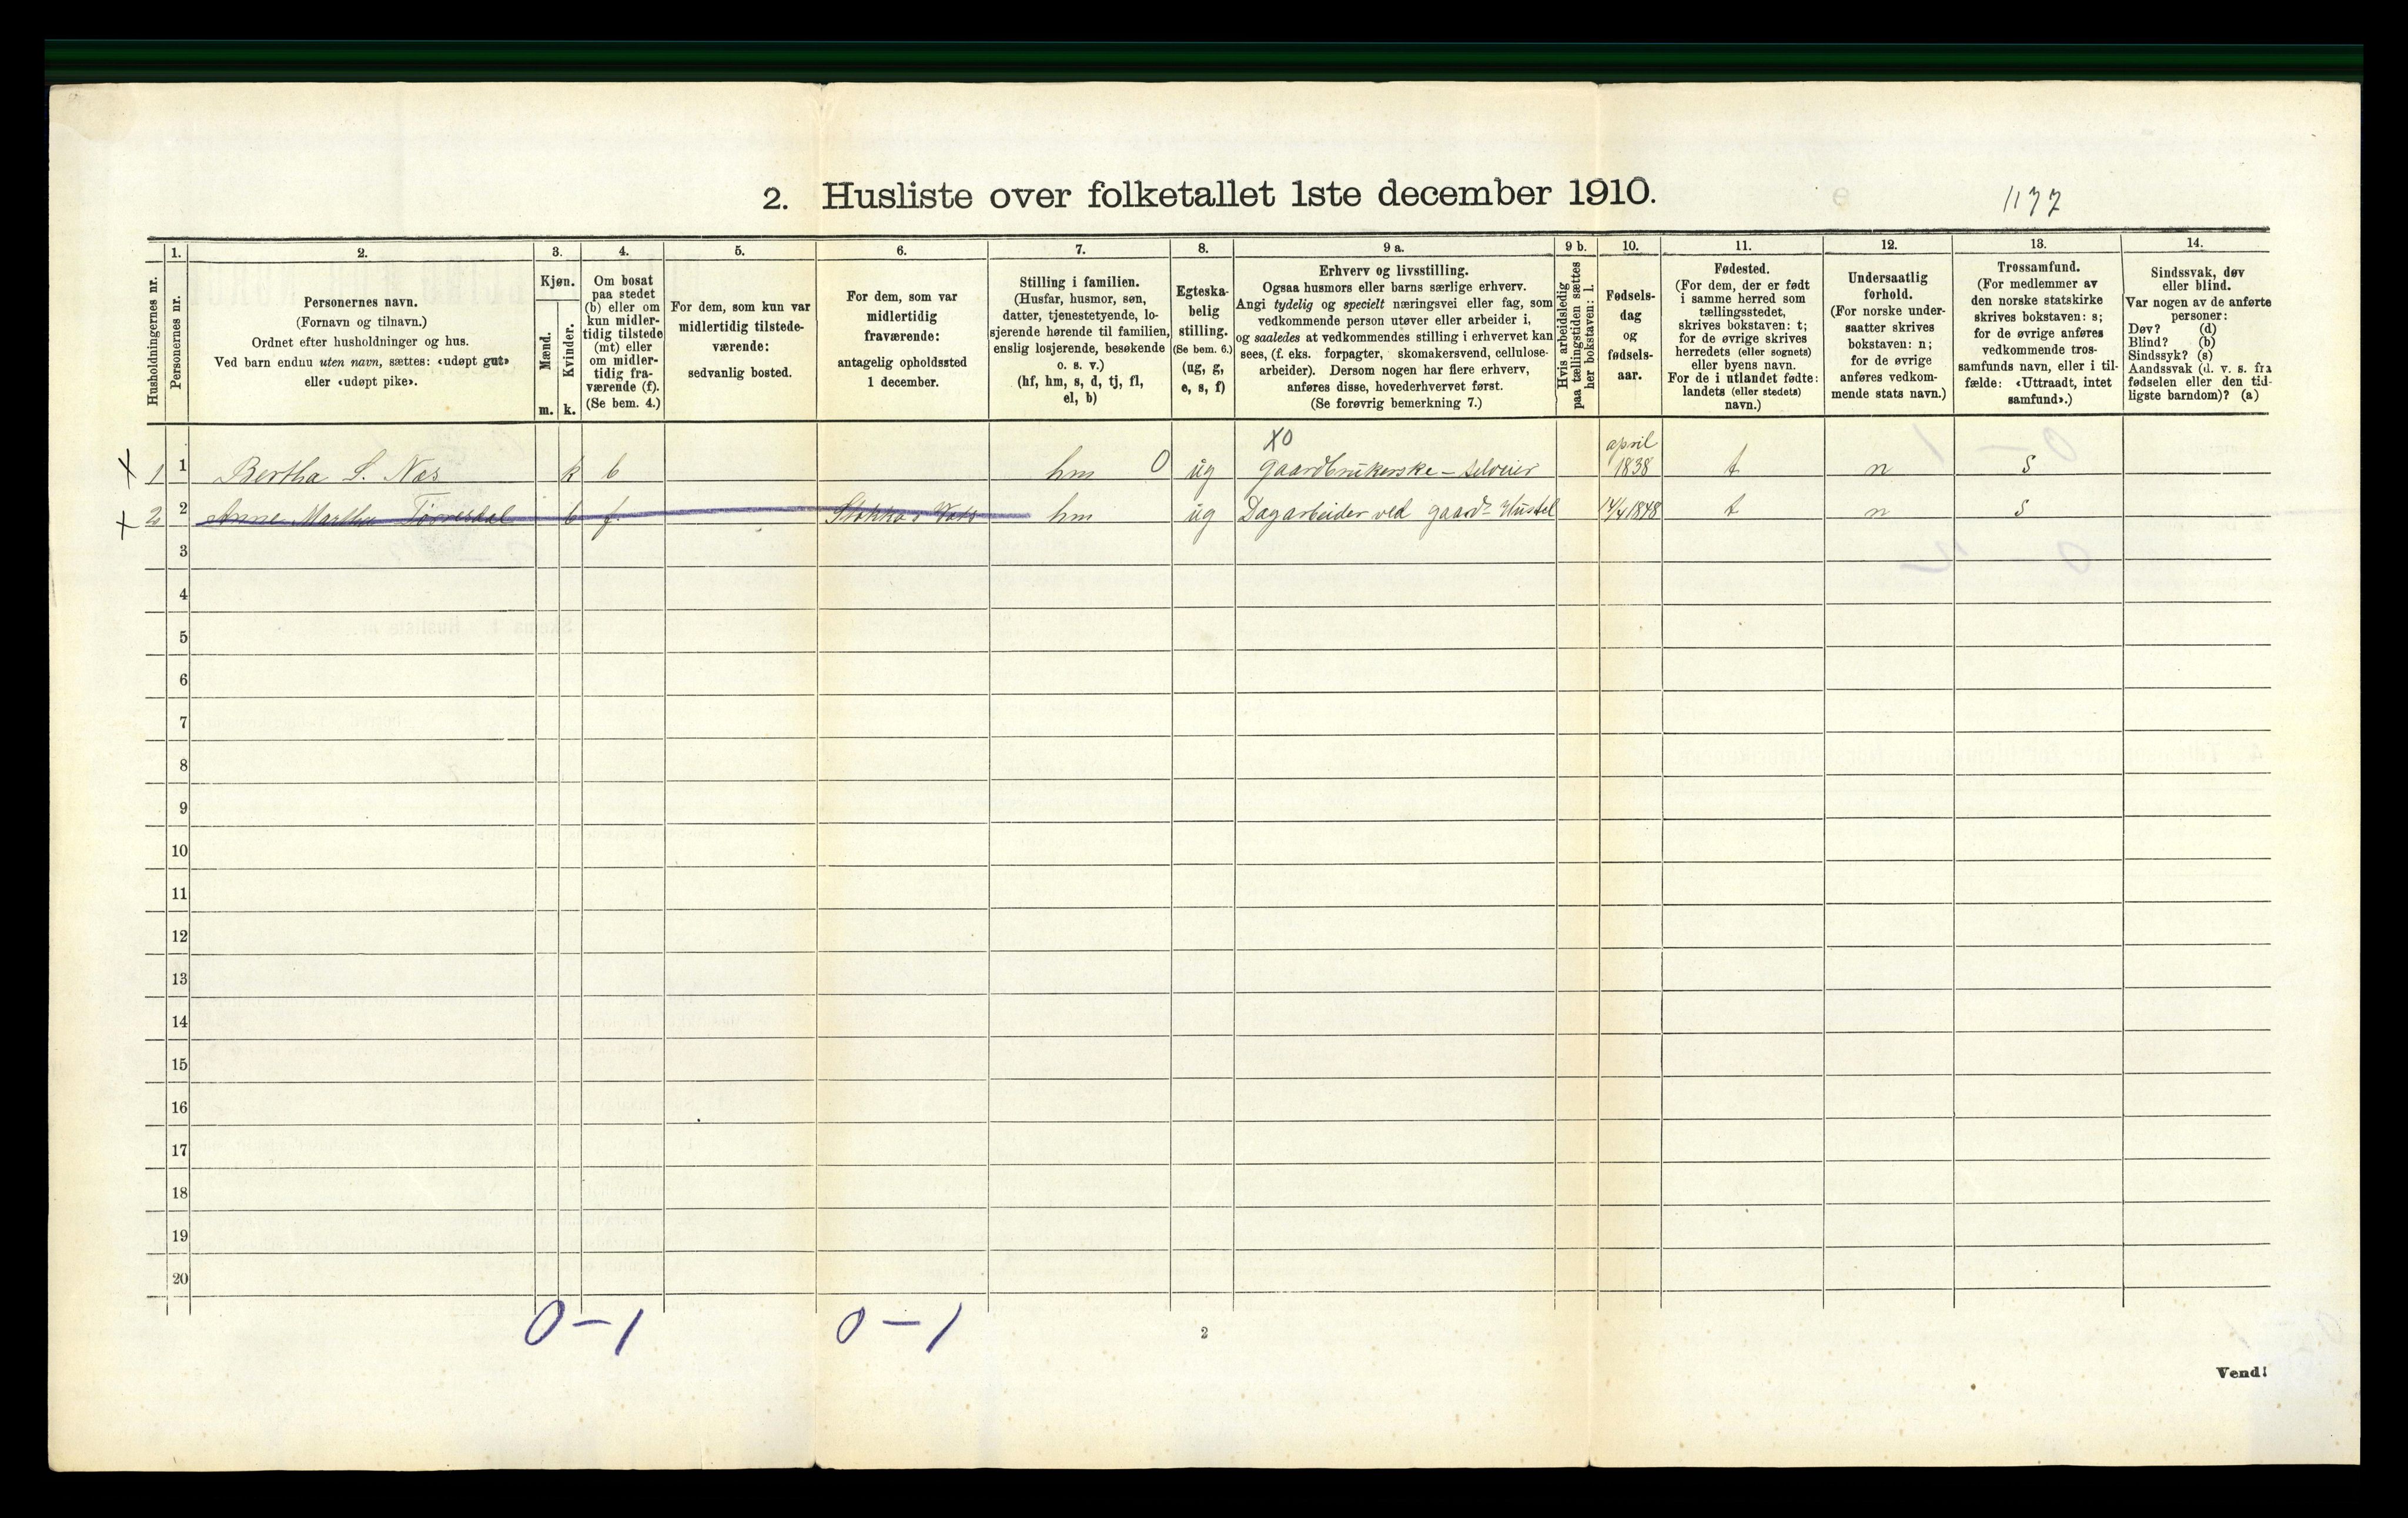 2. Husliste over folketallet 1ste december 1910.
1177
Husholdningernes nr.
1.
Personernes nr.
2.
Personernes navn.
(Fornavn og tilnavn.)
Ordnet efter husholdninger og hus.
Ved barn endnu uten navn, sættes: «udøpt gut»
eller «udøpt pike».
3.
Kjøn.
Mænd.
m.
Kvinder.
k.
4.
Om bosat
paa stedet
(b) eller om
kun midler-
tidig tilstede
(mt) eller
om midler-
tidig fra-
værende (f).
(Se bem. 4.)
5.
For dem, som kun var
midlertidig tilstede-
værende:
sedvanlig bosted.
6.
For dem, som var
midlertidig
fraværende:
antagelig opholdssted
1 december.
7.
Stilling i familien.
(Husfar, husmor, søn,
datter, tjenestetyende, lo-
sjerende hørende til familien,
enslig losjerende, besøkende
o. s. v.)
(hf, hm, s, d, tj, fl,
el, b)
8.
Egteska-
belig
stilling.
(Se bem. 6.)
(ug, g,
e, s, f)
9 a.
Erhverv og livsstilling.
Ogsaa husmors eller barns særlige erhverv.
Angi tydelig og specielt næringsvei eller fag, som
vedkommende person utøver eller arbeider i,
og saaledes at vedkommendes stilling i erhvervet kan
sees, (f. eks. forpagter, skomakersvend, cellulose-
arbeider). Dersom nogen har flere erhverv,
anføres disse, hovederhvervet først.
(Se forøvrig bemerkning 7.)
9 b.
Hvis arbeidsledig
paa tællingstiden sættes
her bokstaven: l.
10.
Fødsels-
dag
og
fødsels-
aar.
11.
Fødested.
(For dem, der er født
i samme herred som
tællingsstedet,
skrives bokstaven: t;
for de øvrige skrives
herredets (eller sognets)
eller byens navn.
For de i utlandet fødte:
landets (eller stedets)
navn.)
12.
Undersaatlig
forhold.
(For norske under-
saatter skrives
bokstaven: n;
for de øvrige
anføres vedkom-
mende stats navn.)
13.
Trossamfund.
(For medlemmer av
den norske statskirke
skrives bokstaven: s;
for de øvrige anføres
vedkommende tros-
samfunds navn, eller i til-
fælde: «Uttraadt, intet
samfund».)
14.
Sindssvak, døv
eller blind.
Var nogen av de anførte
personer:
Døv? (d)
Blind? (b)
Sindssyk? (s)
Aandssvak (d. v. s. fra
fødselen eller den tid-
ligste barndom)? (a)
X 1 1 Bertha S. Næs k b hm 0 ug X0 gaardbrukerske – selveier april 1838 t n s
X 2 2 Anne Martha Tørresdal f Stokka i Vats hm ug Dagarbeider ved gaard- Hustel 14/4 1848 t n s
3
4
5
6
7
8
9
10
11
12
13
14
15
16
17
18
19
20
0 – 1 0 – 1
2
Vend!